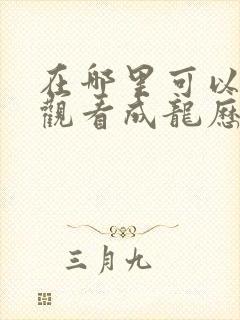 在哪里可以
觀看成龍歷
三月九